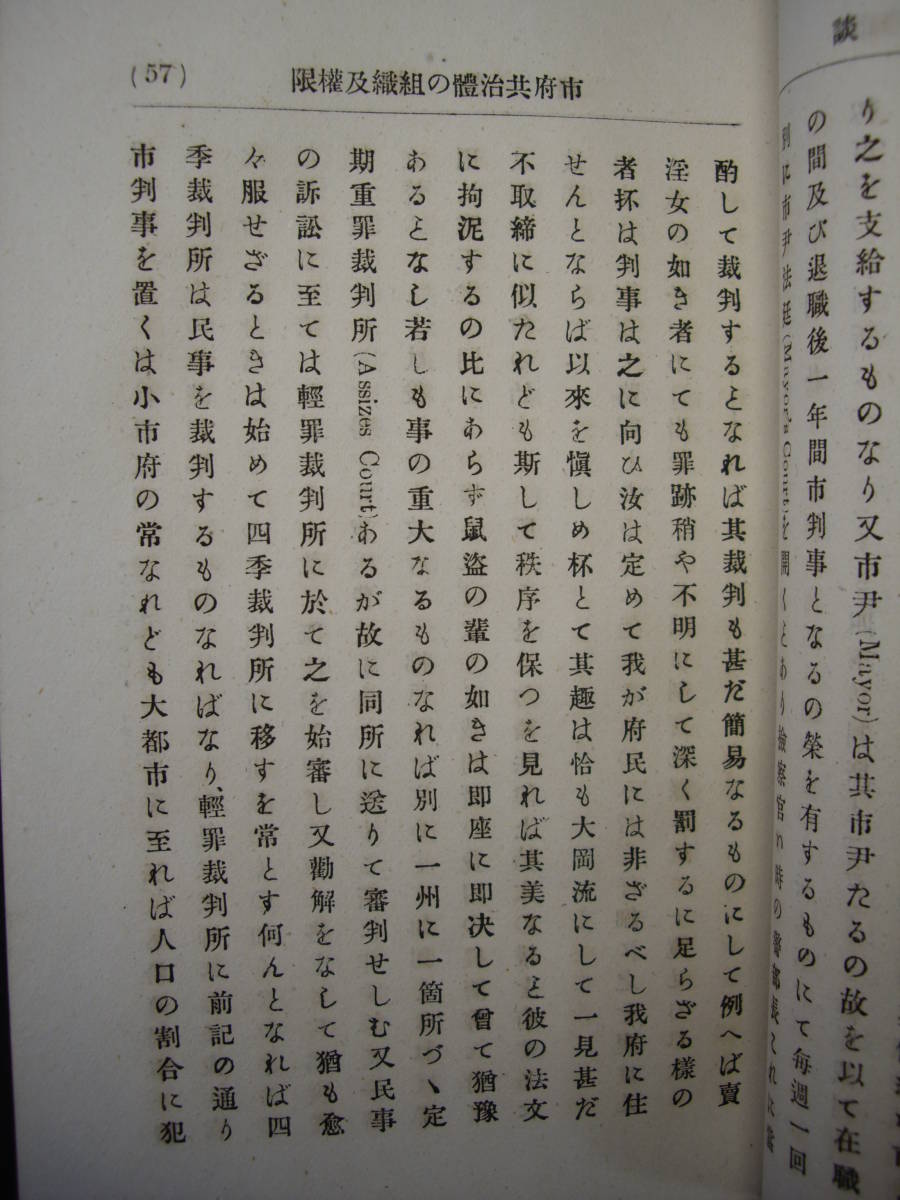 談
り之を支給するものなり又市尹(Mayor)は其市尹たるの故を以て在職
の間及び退職後一年間市判事となるの榮を有するものにて毎週一回
別に市尹法廷(Mayor's Court)を開くとあり檢察官は時の
(57)
市府共治體の組織及權限
酌して裁判するとなれば其裁判も甚だ簡易なるものにして例へば賣
淫女の如き者にても罪跡稍や不明にして深く罰するに足らざる樣の
者抔は判事は之に向ひ汝は定めて我が府民には非ざるべし我府に住
せんとならば以來を愼しめ杯とて其趣は恰も大岡流にして一見甚だ
不取締に似たれども斯して秩序を保つを見れば其美なると彼の法文
に拘泥するの比にあらず鼠盜の輩の如きは即座に即决して曾て猶豫
あるとなし若しも事の重大なるものなれば別に一州に一箇所づゝ定
期重罪裁判所(Assizes Court)あるが故に同所に送りて審判せしむ又民事
の訴訟に至ては輕罪裁判所に於て之を始審し又勸解をなして猶も愈
々服せざるときは始めて四季裁判所に移すを常とす何んとなれば四
季裁判所は民事を裁判するものなればなり、輕罪裁判所に前記の通り
市判事を置くは小市府の常なれども大都市に至れば人口の割合に犯